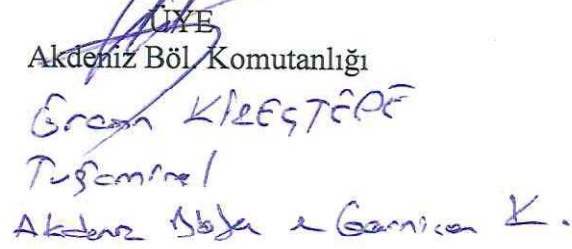 ÜYE
Akdeniz Böl. Komutanlığı
Ercan KİREÇTEPE
Tuğamiral
Akdeniz Bölge ve Garnizon K.